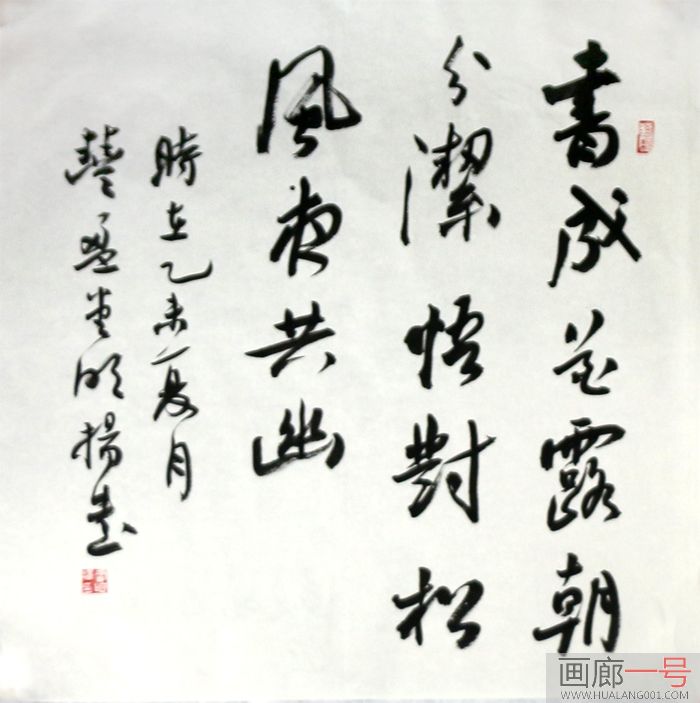 書成花露朝
分潔悟對松
風夜共幽
時在乙未夏月
豐盈堂明揚書
画廊一号
WWW.HUALANG001.COM